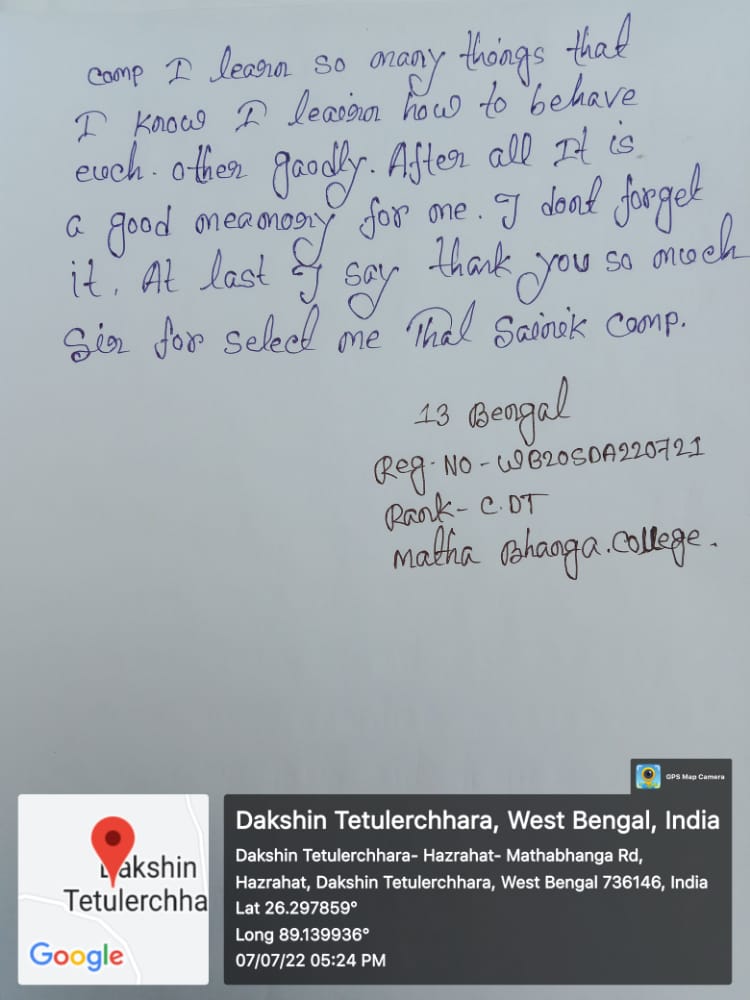 camp I learn so many things that
I know I learn how to behave
euch. other goodly. After all It is
a good meamory for me. I dont forget
it. At last I say thank you so much
Sir for select me Thal Sainik Camp.
13 Bengal
Reg. NO - WB20SDA220721
Rank - C.DT
Matha Bhanga. College.
GPS Map Camera
Dakshin Tetulerchhara, West Bengal, India
Dakshin Tetulerchhara- Hazrahat- Mathabhanga Rd,
Hazrahat, Dakshin Tetulerchhara, West Bengal 736146, India
Lat 26.297859°
Long 89.139936°
07/07/22 05:24 PM
Dakshin
Tetulerchha
Google